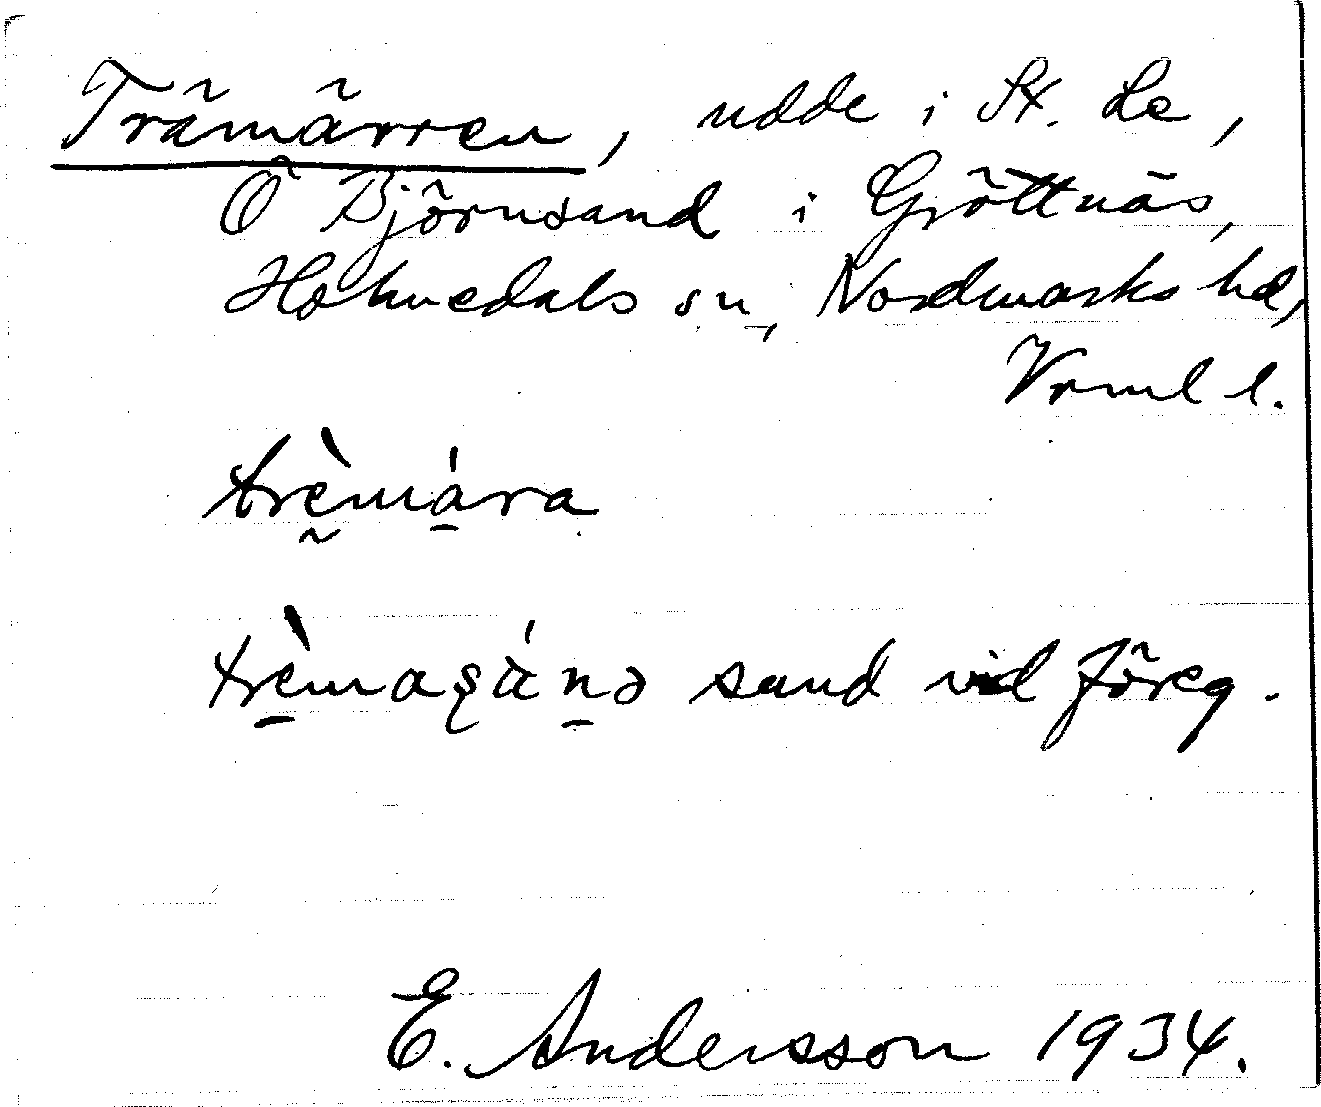 Trämärren, udde i St. Le,
Ö Björnsand i Gröttnäs,
Holmedals sn, Nordmarks hd,
Vrml l.
trèmára
trèmaʂánə sand vid föreg.
E. Andersson 1934.